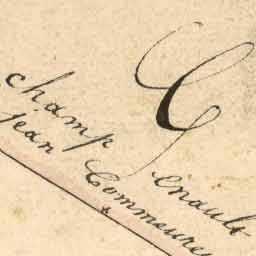 champ Genault
jean Commeure